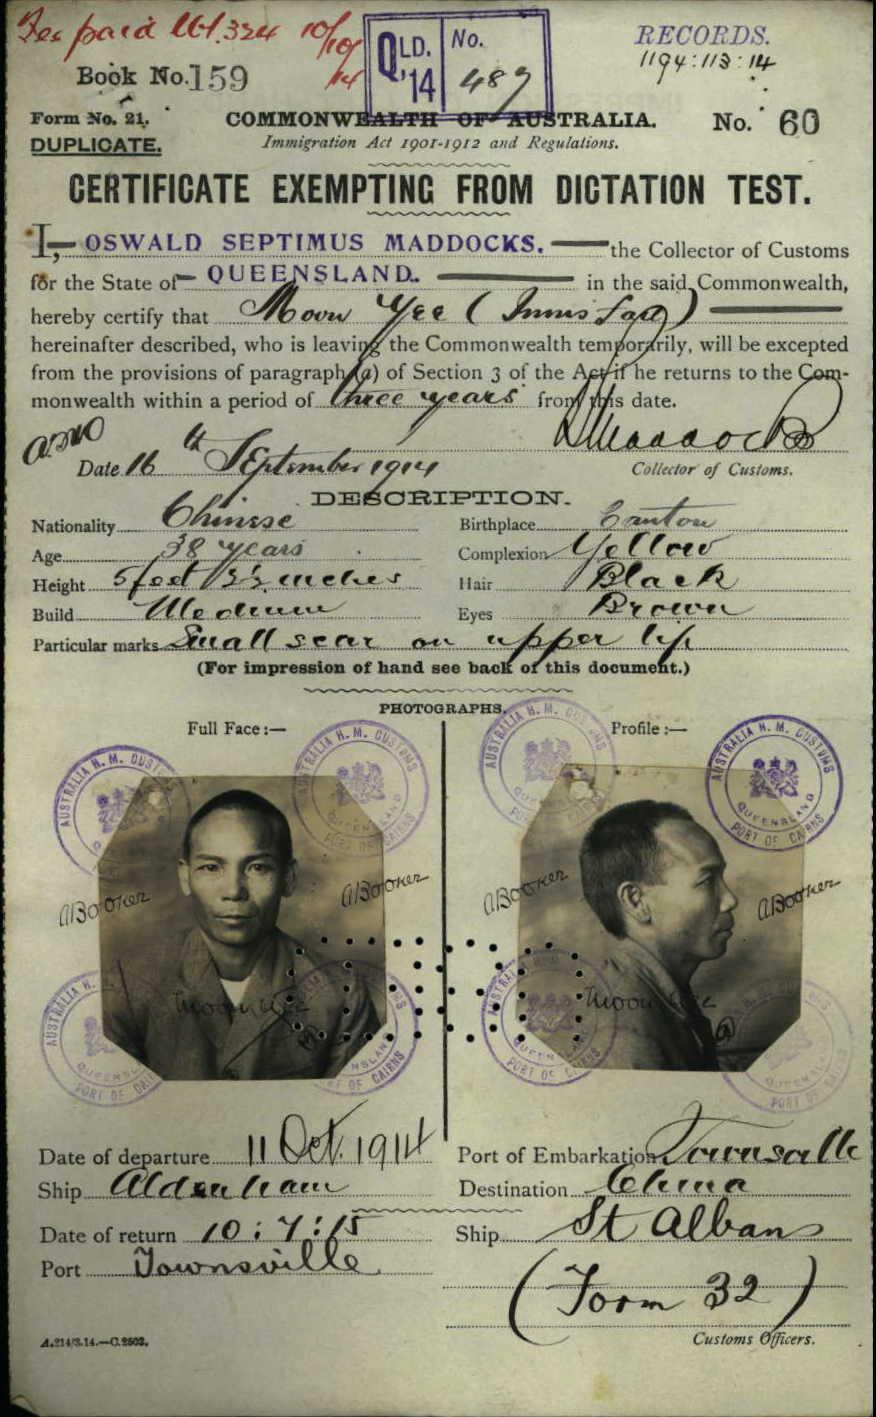 Fee paid 10/10/14
QLD. '14 No. 489
RECORDS.
1194:113:14
Book No. 159
Form No. 21.
COMMONWEALTH OF AUSTRALIA.
No. 60
DUPLICATE.
Immigration Act 1901-1912 and Regulations.
CERTIFICATE EXEMPTING FROM DICTATION TEST.
I, OSWALD SEPTIMUS MADDOCKS. the Collector of Customs
for the State of QUEENSLAND. in the said Commonwealth,
hereby certify that Moon Yee (Innisfail)
hereinafter described, who is leaving the Commonwealth temporarily, will be excepted
from the provisions of paragraph (a) of Section 3 of the Act if he returns to the Com-
monwealth within a period of three years from this date.
OSMaddocks
Date 16th September 1914
Collector of Customs.
DESCRIPTION.
Nationality Chinese
Birthplace Canton
Age 38 years
Complexion Yellow
Height 5 feet 3½ inches
Hair Black
Build Medium
Eyes Brown
Particular marks Small scar on upper lip
(For impression of hand see back of this document.)
PHOTOGRAPHS.
Full Face :—
Profile :—
AUSTRALIA H. M. CUSTOMS
QUEENSLAND
PORT OF CAIRNS
ABooker
ABooker
ABooker
ABooker
Moon Yee
Moon Yee
Date of departure 11 Oct. 1914
Port of Embarkation Townsville
Ship Aldenham
Destination China
Date of return 10:7:15
Ship St Albans
Port Townsville
(Form 32)
A.214/3.14.—C.2503.
Customs Officers.